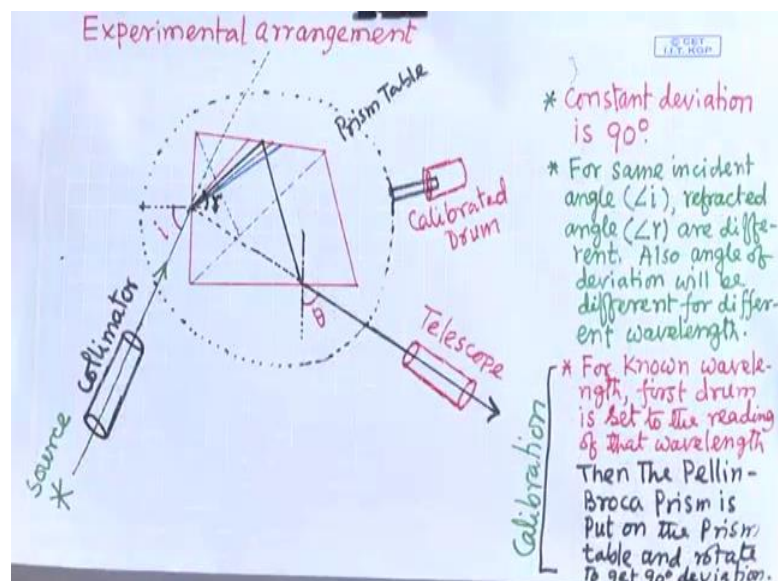 Experimental arrangement
© CET
I.I.T. KGP
Prism Table
Calibrated
Drum
r
i
θ
Collimator
Telescope
Source
* Constant deviation
is 90°
* For same incident
angle (∠i), refracted
angle (∠r) are diffe-
rent. Also angle of
deviation will be
different for differ-
ent wavelength.
Calibration
* For Known wavele-
ngth, first drum
is set to the reading
of that wavelength
Then The Pellin-
Broca Prism is
Put on the Prism
table and rotate
to get 90° deviation.